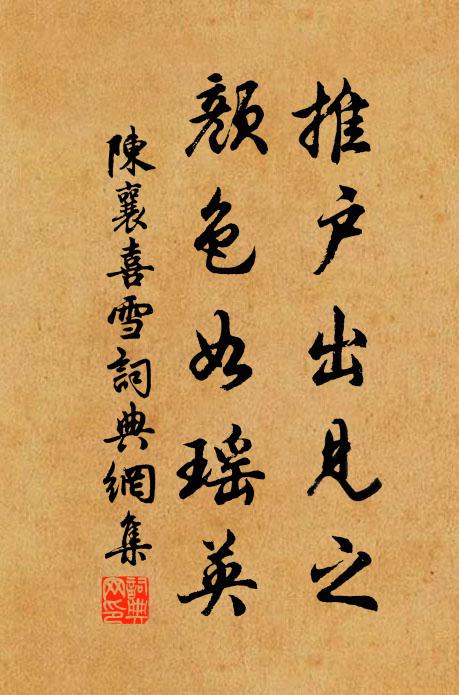 推户出見之
顏色如瑶英
陳襄喜雪詞典網集
詞典网印